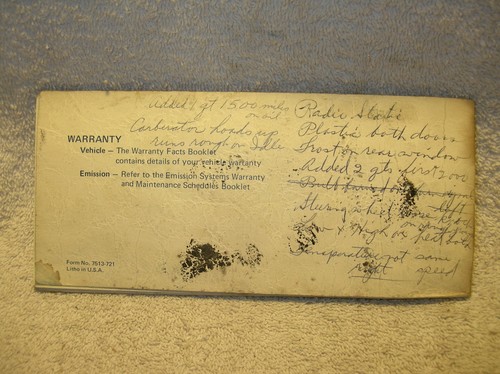 added 1 qt 1500 miles
on oil
Carberator loads up
runs rough on Idle
WARRANTY
Vehicle — The Warranty Facts Booklet
contains details of your vehicle warranty
Emission — Refer to the Emission Systems Warranty
and Maintenance Schedules Booklet
Form No. 7513-721
Litho in U.S.A.
Radio Static
Plastic both doors
Frost on rear window
Added 2 qts first 2000
left
Low & High on heat
Temperature not same
right speed